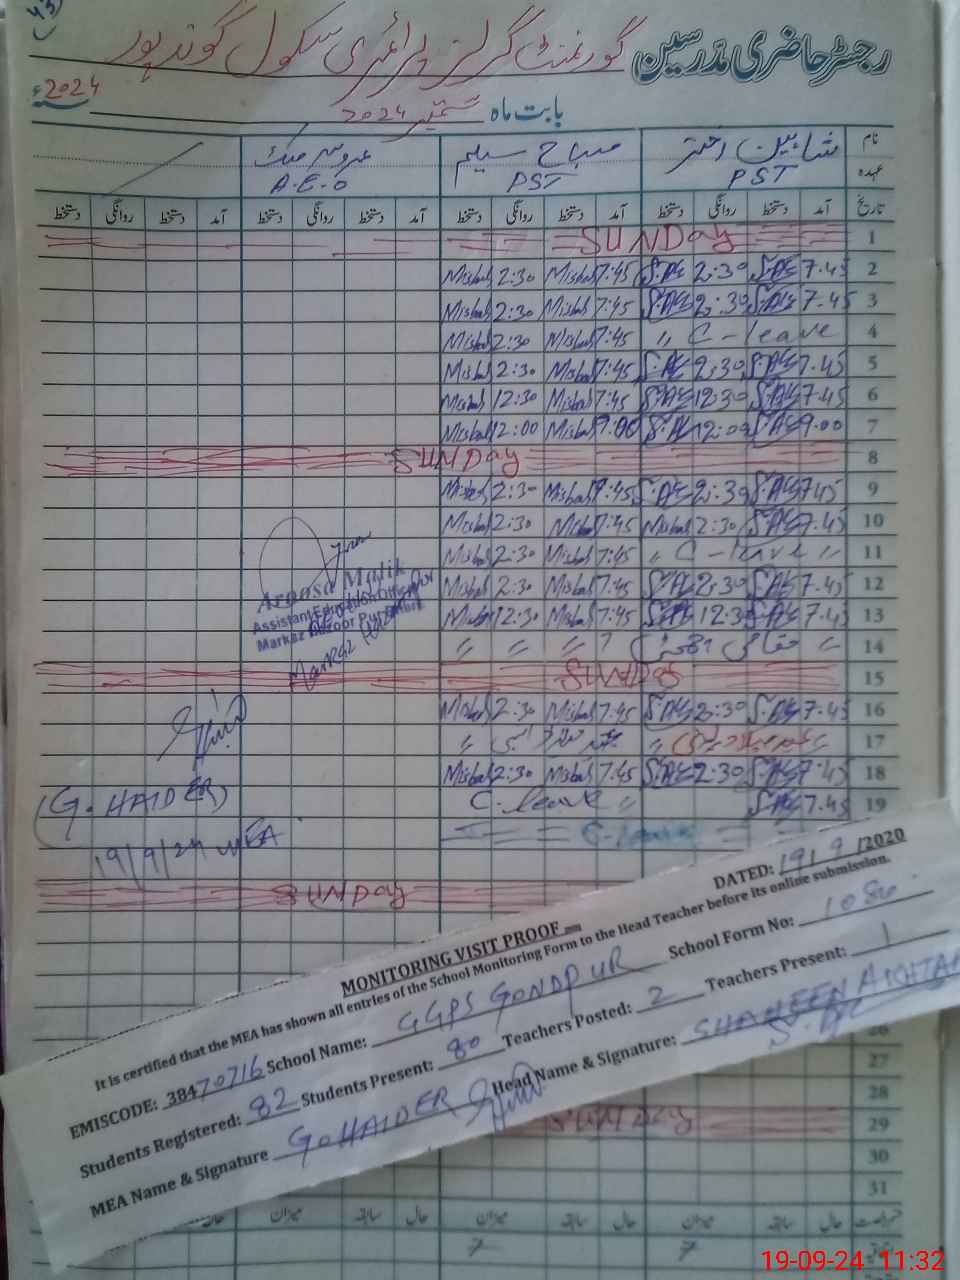 رجسٹر حاضری مدرسین گورنمنٹ گرلز پرائمری سکول گوندپور
بابت ماہ ستمبر 2024 2024ء
نام شاہین اختر مصباح سلیم عروسہ ملک
عہدہ PST PST A.E.O
تاریخ آمد دستخط روانگی دستخط آمد دستخط روانگی دستخط آمد دستخط روانگی دستخط آمد دستخط روانگی دستخط
1 SUNDay
2 7.45 2:30 7:45 Misbah 2:30 Misbah
3 7.45 2:30 7:45 Misbah 2:30 Misbah
4 〃 C-leave 7:45 Misbah 2:30 Misbah
5 7.45 2:30 7:45 Misbah 2:30 Misbah
6 7.45 12:30 7:45 Misbah 12:30 Misbah
7 9.00 12:00 Misbah 12:00 Misbah
8 SUNDay
9 7.45 2:30 7:45 Misbah 2:30 Misbah
10 7.45 2:30 7:45 Misbah 2:30 Misbah
11 〃 C-leave 〃 7:45 Misbah 2:30 Misbah
12 7.45 2:30 7:45 Misbah 2:30 Misbah
13 7.45 12:30 7:45 Misbah 12:30 Misbah
14 مقامی
15 SUNDay
16 7.45 2:30 7:45 Misbah 2:30 Misbah
17
18 7.45 2:30 7:45 Misbah 2:30 Misbah
19 7.45 C-leave 〃
C-leave
SUNDay
Aroosa Malik
Assistant Education Officer
(G. HAIDER)
19/9/24 MEA
MONITORING VISIT PROOF DATED: 19/9/2020
It is certified that the MEA has shown all entries of the School Monitoring Form to the Head Teacher before its online submission.
EMISCODE: 38470716 School Name: GGPS GONDPUR School Form No: 1080
Students Registered: 82 Students Present: 80 Teachers Posted: 2 Teachers Present: 1
MEA Name & Signature G. HAIDER Head Name & Signature: SHAHEEN AKHTAR
26
27
28
29 SUNDay
30
31
حال سابقہ میزان حال سابقہ میزان حال سابقہ میزان
7 7
19-09-24 11:32